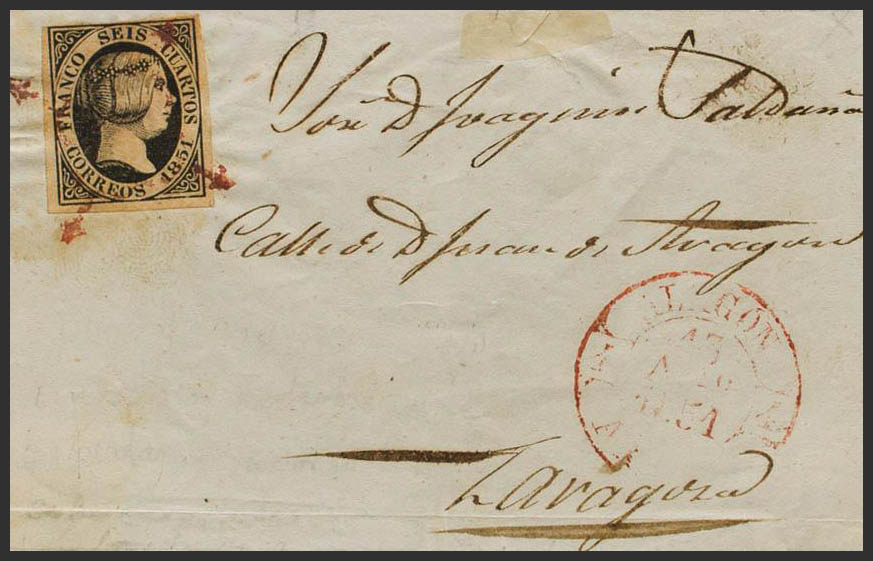 FRANCO SEIS CUARTOS
CORREOS 1851
Sor. D Joaquin Saldaña
Calle de D Juan de Aragon
ALAGON
17
51
Zaragoza